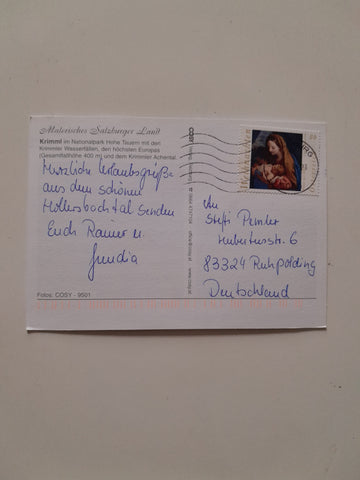 Malerisches Salzburger Land
Krimml im Nationalpark Hohe Tauern mit den
Krimmler Wasserfällen, den höchsten Europas
(Gesamtfallhöhe 400 m) und dem Krimmler Achental.
Herzliche Urlaubsgrüße
aus dem schönen
Hollersbachtal senden
Euch Rainer u.
Fotos: COSY - 9501
COSY
An
Steffi
Hubertusstr. 6
83324 Ruhpolding
Deutschland